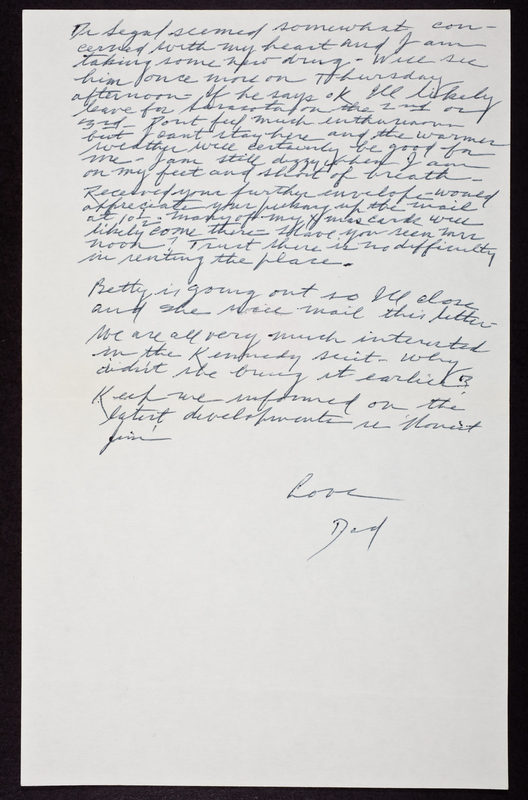 Dr Segal seemed somewhat con-
cerned with my heart and I am
taking some new drug - Will see
him once more on Thursday
afternoon - If he says OK I'll likely
leave for Sarasota on the 2nd or
3rd. Dont feel much enthusiasm
but I cant stay here and the warmer
weather will certainly be good for
me - I am still dizzy when I am
on my feet and short of breath -
Received your further envelope - would
appreciate your picking up the mail
at 102 - many of my Xmas cards will
likely come there - Have you seen Mrs
Noon? Trust there is no difficulty
in renting the place.
Betty is going out so I'll close
and she will mail this letter -
We are all very much interested
in the Kennedy suit - Why
didn't she bring it earlier?
Keep me informed on the
latest developments re "Honest
Jim"
Love
Dad